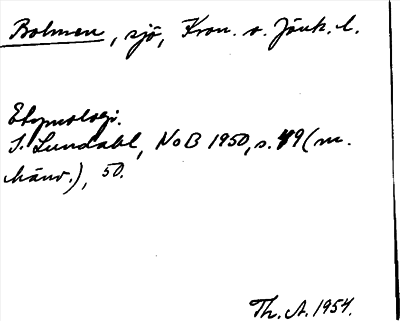 Bolmen, sjö, Kron. o. Jönk. l.
Etymologi.
I. Lundahl, NoB 1950, s. 49 (m.
hänv.), 50.
Th. A. 1954.